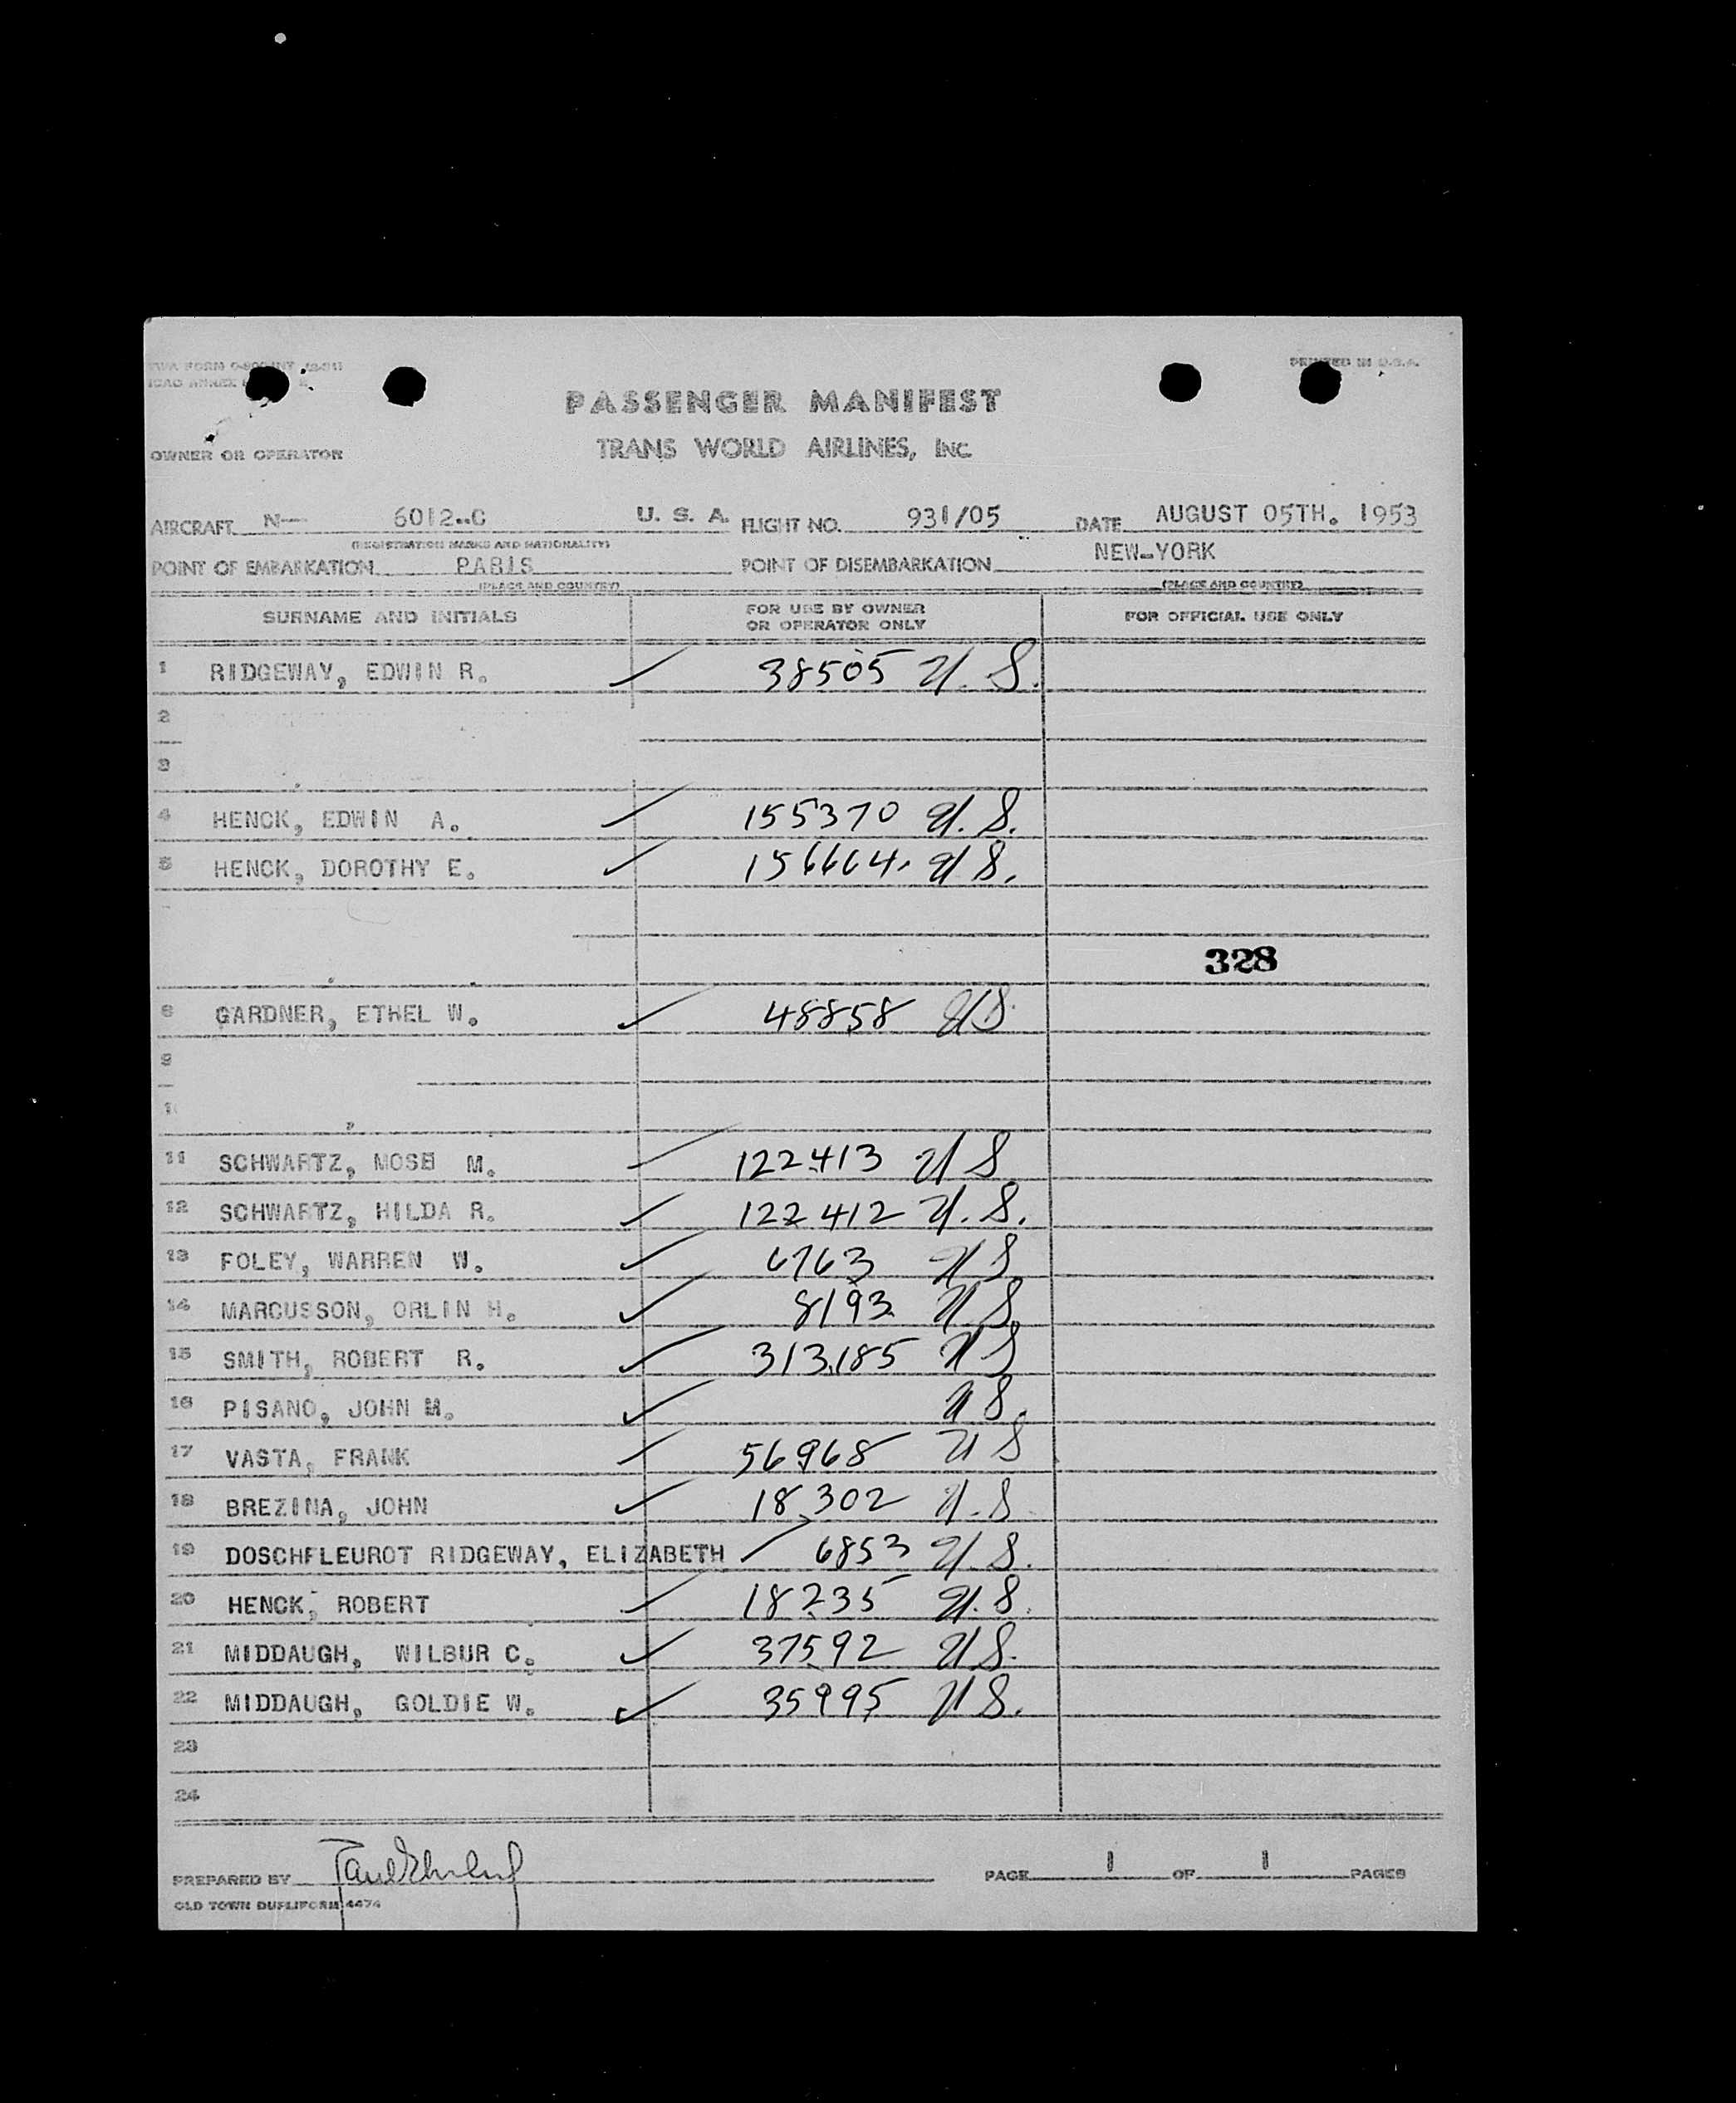 TWA FORM
ICAO ANNEX
PRINTED IN U.S.A.
PASSENGER MANIFEST
TRANS WORLD AIRLINES, INC.
OWNER OR OPERATOR
AIRCRAFT N— 6012-C U. S. A. FLIGHT NO. 931/05 DATE AUGUST 05TH. 1953
(REGISTRATION MARKS AND NATIONALITY)
POINT OF EMBARKATION PARIS POINT OF DISEMBARKATION NEW-YORK
(PLACE AND COUNTRY) (PLACE AND COUNTRY)
SURNAME AND INITIALS FOR USE BY OWNER OR OPERATOR ONLY FOR OFFICIAL USE ONLY
1 RIDGEWAY, EDWIN R. ✓ 38505 U. S.
2
3
4 HENCK, EDWIN A. ✓ 155370 U. S.
5 HENCK, DOROTHY E. ✓ 156664. U S.
328
8 GARDNER, ETHEL W. ✓ 48858 US.
9
11 SCHWARTZ, MOSE M. ✓ 122413 U S
12 SCHWARTZ, HILDA R. ✓ 122412 U. S.
13 FOLEY, WARREN W. ✓ 6763 U S
14 MARCUSSON, ORLIN H. ✓ 8193 U S
15 SMITH, ROBERT R. ✓ 313185 U S
16 PISANO, JOHN M. ✓ U S.
17 VASTA, FRANK ✓ 56968 U S
18 BREZINA, JOHN ✓ 18302 U. S
19 DOSCHFLEUROT RIDGEWAY, ELIZABETH ✓ 6853 U. S.
20 HENCK, ROBERT ✓ 18235 U. S.
21 MIDDAUGH, WILBUR C. ✓ 37592 U S.
22 MIDDAUGH, GOLDIE W. ✓ 35995 U S.
23
24
PREPARED BY PAGE 1 OF 1 PAGES
OLD TOWN DUPLIFORM 4474